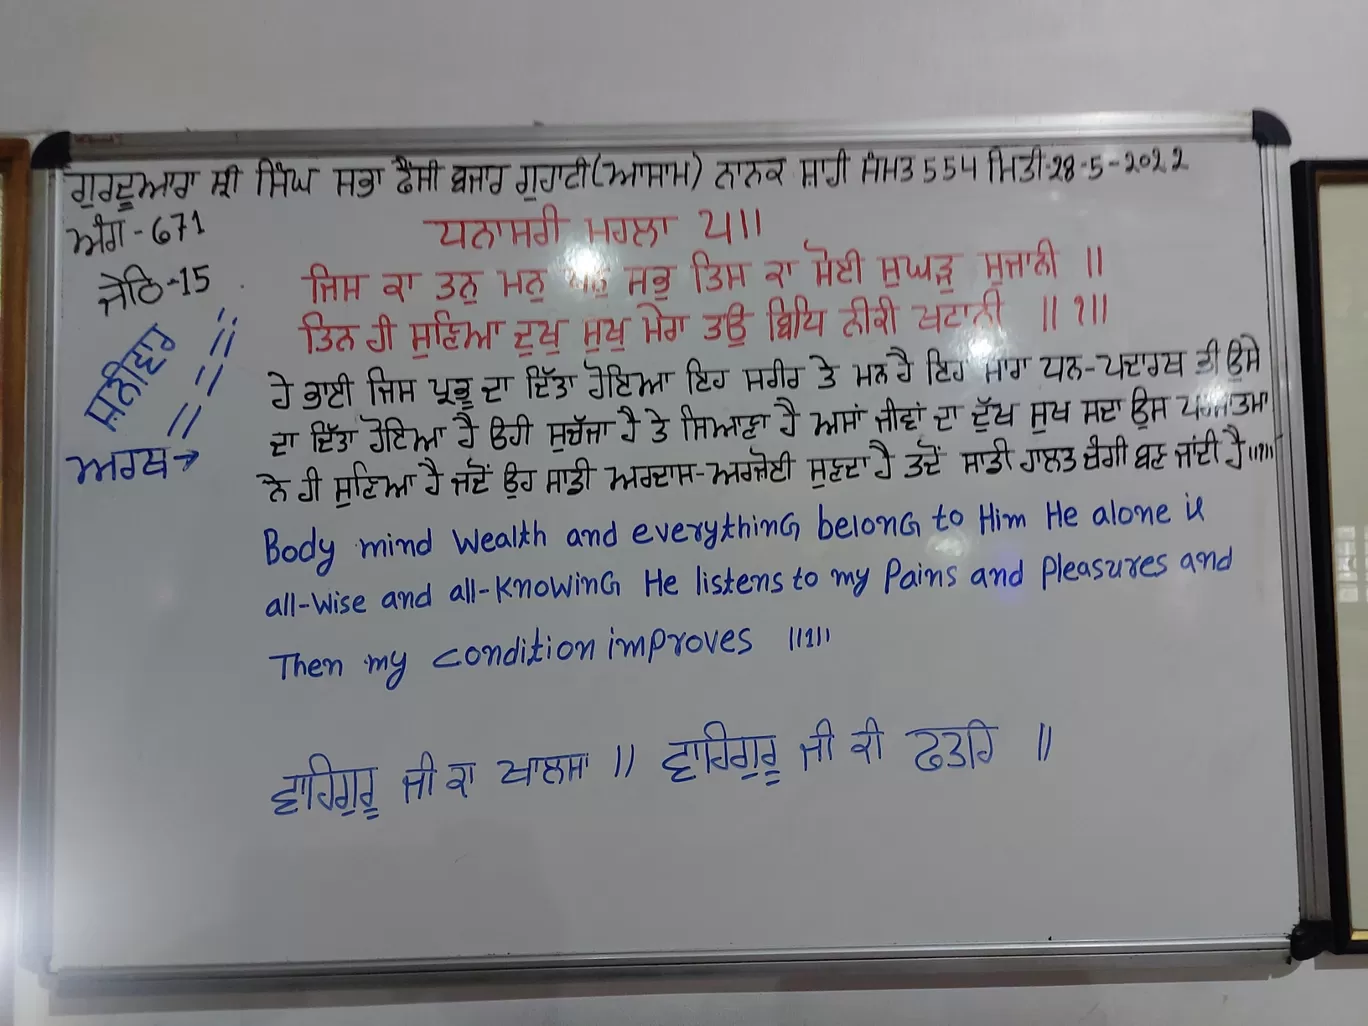 ਗੁਰਦੂਆਰਾ ਸ਼੍ਰੀ ਸਿੰਘ ਸਭਾ ਫੈਂਸੀ ਬਜਾਰ ਗੁਹਾਟੀ (ਆਸਾਮ) ਨਾਨਕ ਸ਼ਾਹੀ ਸੰਮਤ 554 ਮਿਤੀ-28-5-2022
ਅੰਗ - 671
ਧਨਾਸਰੀ ਮਹਲਾ ੫॥
ਜੇਠਿ-15
ਜਿਸ ਕਾ ਤਨੁ ਮਨੁ ਧਨੁ ਸਭੁ ਤਿਸ ਕਾ ਸੋਈ ਸੁਘੜੁ ਸੁਜਾਨੀ ॥
ਤਿਨ ਹੀ ਸੁਣਿਆ ਦੁਖੁ ਸੁਖੁ ਮੇਰਾ ਤਉ ਬਿਧਿ ਨੀਕੀ ਖਟਾਨੀ ॥੧॥
ਸ਼ਨੀਵਾਰ
ਹੇ ਭਾਈ ਜਿਸ ਪ੍ਰਭੂ ਦਾ ਦਿੱਤਾ ਹੋਇਆ ਇਹ ਸਰੀਰ ਤੇ ਮਨ ਹੈ ਇਹ ਸਾਰਾ ਧਨ-ਪਦਾਰਥ ਭੀ ਉਸੇ
ਦਾ ਦਿੱਤਾ ਹੋਇਆ ਹੈ ਓਹੀ ਸੁਚੱਜਾ ਹੈ ਤੇ ਸਿਆਣਾ ਹੈ ਅਸਾਂ ਜੀਵਾਂ ਦਾ ਦੁੱਖ ਸੁਖ ਸਦਾ ਉਸ ਪਰਮਾਤਮਾ
ਅਰਥ→
ਨੇ ਹੀ ਸੁਣਿਆ ਹੈ ਜਦੋਂ ਉਹ ਸਾਡੀ ਅਰਦਾਸ-ਅਰਜ਼ੋਈ ਸੁਣਦਾ ਹੈ ਤਦੋਂ ਸਾਡੀ ਹਾਲਤ ਚੰਗੀ ਬਣ ਜਾਂਦੀ ਹੈ॥੧॥
Body mind Wealth and everything belong to Him He alone is
all-Wise and all-Knowing He listens to my Pains and Pleasures and
Then my condition improves ॥1॥
ਵਾਹਿਗੁਰੂ ਜੀ ਕਾ ਖਾਲਸਾ ॥ ਵਾਹਿਗੁਰੂ ਜੀ ਕੀ ਫਤਹਿ ॥